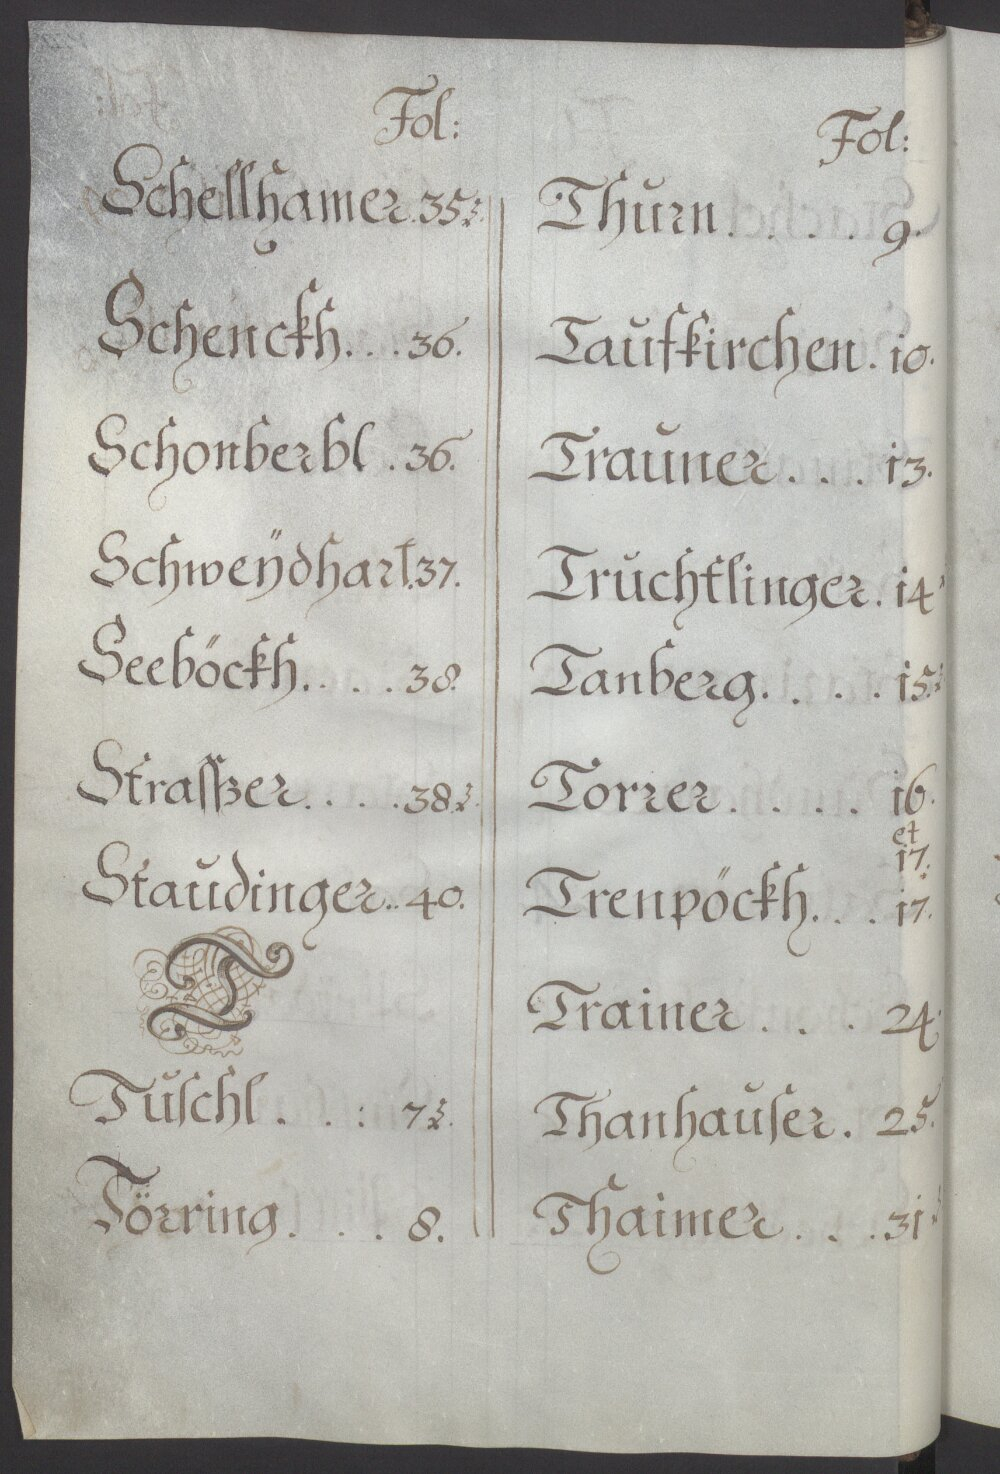 Fol:
Schellhamer. 35½.
Schenckh. . . 36.
Schonberbl . 36.
Schweÿdhart. 37.
Seeböckh. . . . 38.
Strasszer. . . . 38½.
Staudinger. . 40.
T
Tuschl . . : 7½.
Törring. . . . 8.
Fol:
Thurn. . . . . 9.
Taufkirchen. 10.
Trauner. . . . 13.
Truchtlinger. 14
Tanberg. . . . . 15½
Torrer. . . . . 16.
et
17.
Trenpöckh. . . 17.
Trainer . . . . 24.
Thanhauser. 25.
Thaimer. . . . 31